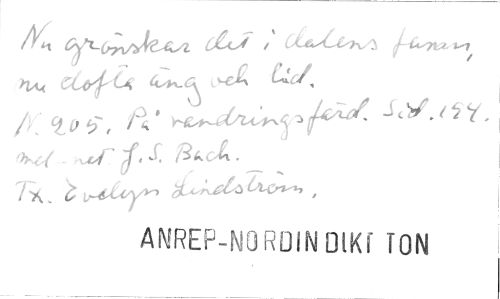 Nu grönskar det i dalens famn,
nu dofta äng och lid.
N. 205. På vandringsfärd. Sid. 194.
mel-not J.S. Bach.
Tx. Evelyn Lindström.
ANREP-NORDIN DIKT TON